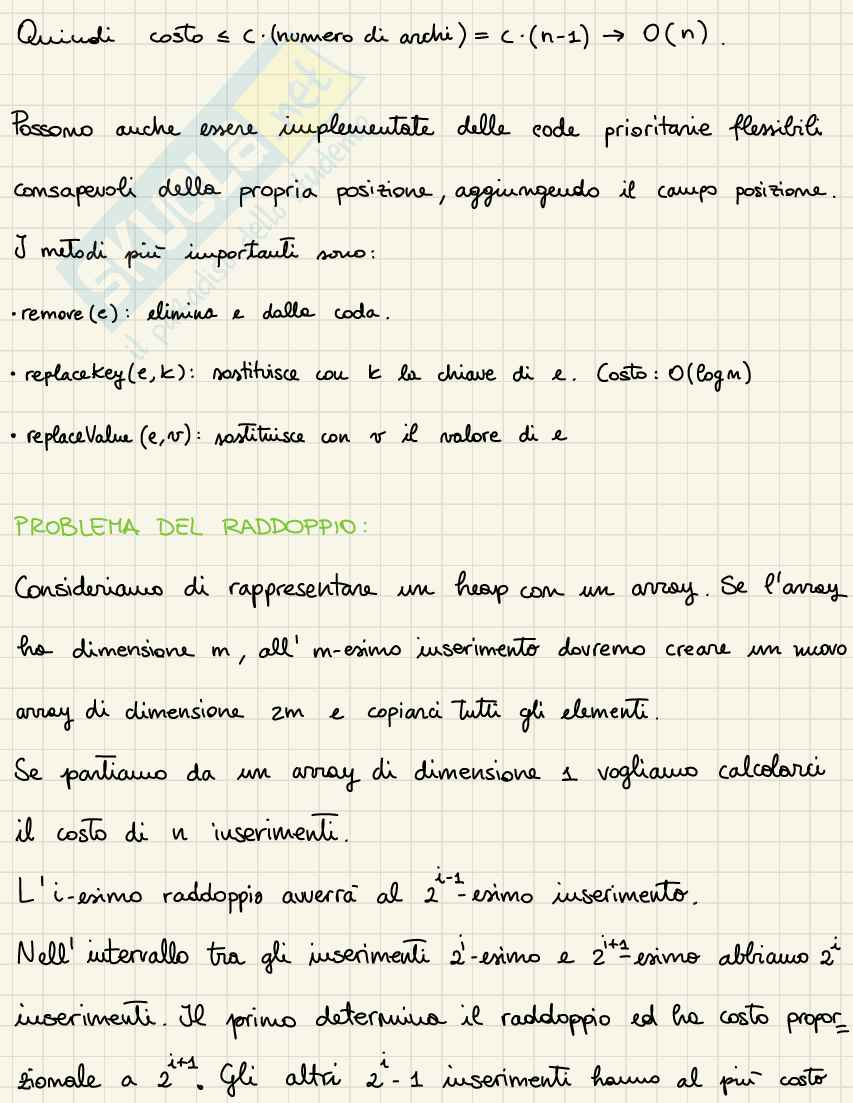 Quindi costo ≤ c·(numero di archi) = c·(n-1) → O(n).
Possono anche essere implementate delle code prioritarie flessibili
consapevoli della propria posizione, aggiungendo il campo posizione.
I metodi più importanti sono:
· remove(e): elimina e dalla coda.
· replaceKey(e,k): sostituisce con k la chiave di e. Costo: O(log n)
· replaceValue(e,v): sostituisce con v il valore di e
PROBLEMA DEL RADDOPPIO:
Consideriamo di rappresentare un heap con un array. Se l'array
ha dimensione m, all' m-esimo inserimento dovremo creare un nuovo
array di dimensione 2m e copiarci tutti gli elementi.
Se partiamo da un array di dimensione 1 vogliamo calcolarci
il costo di n inserimenti.
L'i-esimo raddoppio avverrà al 2^{i-1}-esimo inserimento.
Nell'intervallo tra gli inserimenti 2^i-esimo e 2^{i+1}-esimo abbiamo 2^i
inserimenti. Il primo determina il raddoppio ed ha costo propor=
zionale a 2^{i+1}. Gli altri 2^i-1 inserimenti hanno al più costo
SKUOLA.net
il paradiso dello studente